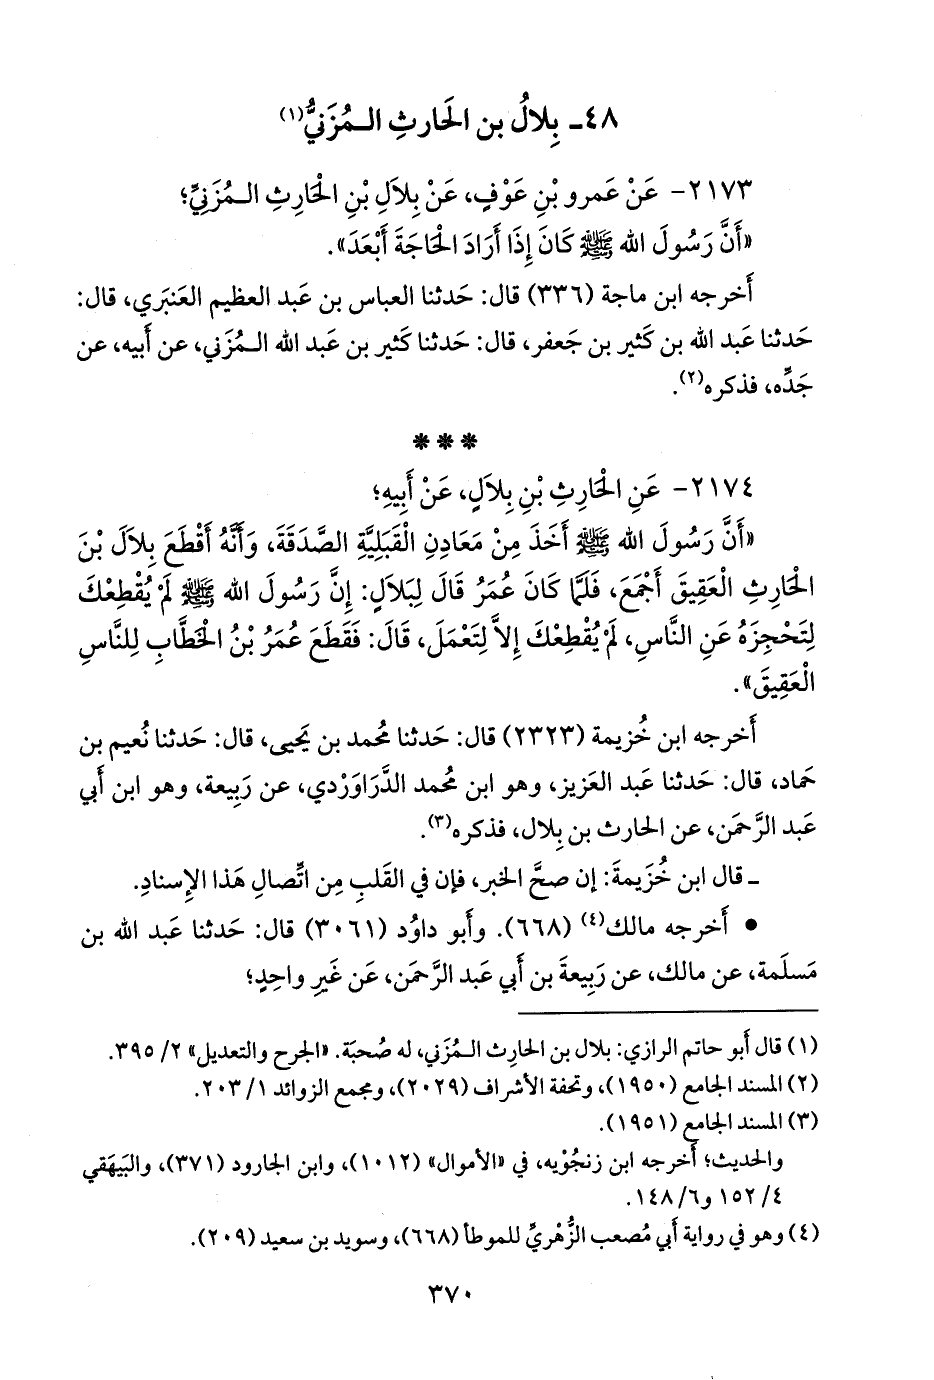 ٤٨ـ بِلالُ بن الحَارثِ الـمُزَنيُّ(١)
٢١٧٣- عَنْ عَمرو بْنِ عَوْفٍ، عَنْ بِلاَلِ بْنِ الْحَارِثِ الـمُزَنِيِّ؛
«أَنَّ رَسُولَ الله ﷺ كَانَ إِذَا أَرَادَ الْحَاجَةَ أَبْعَدَ».
أَخرجه ابن ماجة (٣٣٦) قال: حَدثنا العباس بن عَبد العظيم العَنبَري، قال:
حَدثنا عَبد الله بن كَثير بن جَعفر، قال: حَدثنا كَثير بن عَبد الله الـمُزَني، عن أَبيه، عن
جَدِّه، فذكره(٢).
* * *
٢١٧٤- عَنِ الْحَارِثِ بْنِ بِلاَلٍ، عَنْ أَبِيهِ؛
«أَنَّ رَسُولَ الله ﷺ أَخَذَ مِنْ مَعَادِنِ الْقَبَلِيَّةِ الصَّدَقَةَ، وَأَنَّهُ أَقْطَعَ بِلاَلَ بْنَ
الْحَارِثِ الْعَقِيقَ أَجْمَعَ، فَلَمَّا كَانَ عُمَرُ قَالَ لِبَلاَلٍ: إِنَّ رَسُولَ الله ﷺ لَمْ يُقْطِعْكَ
لِتَحْجِزَهُ عَنِ النَّاسِ، لَمْ يُقْطِعْكَ إِلاَّ لِتَعْمَلَ، قَالَ: فَقَطَعَ عُمَرُ بْنُ الْخَطَّابِ لِلنَّاسِ
الْعَقِيقَ».
أَخرجه ابن خُزيمة (٢٣٢٣) قال: حَدثنا مُحمد بن يَحيى، قال: حَدثنا نُعيم بن
حَماد، قال: حَدثنا عَبد العَزيز، وهو ابن مُحمد الدَّرَاوَرْدي، عن رَبيعة، وهو ابن أَبي
عَبد الرَّحمَن، عن الحارث بن بِلال، فذكره(٣).
ـ قال ابن خُزَيمةَ: إن صحَّ الخبر، فإن في القَلبِ مِن اتِّصالِ هَذا الإِسنادِ.
• أَخرجه مالك(٤) (٦٦٨). وأَبو داوُد (٣٠٦١) قال: حَدثنا عَبد الله بن
مَسلَمة، عن مالك، عن رَبِيعةَ بن أَبي عَبد الرَّحمَن، عَن غَيرِ واحِدٍ؛
(١) قال أَبو حاتم الرازي: بلال بن الحارِث الـمُزَني، له صُحبَة. «الجرح والتعديل» ٢/ ٣٩٥.
(٢) المسند الجامع (١٩٥٠)، وتحفة الأشراف (٢٠٢٩)، ومجمع الزوائد ١/ ٢٠٣.
(٣) المسند الجامع (١٩٥١).
والحديث؛ أخرجه ابن زنجُوْيه، في «الأموال» (١٠١٢)، وابن الجارود (٣٧١)، والبَيهَقي
٤/ ١٥٢ و٦/ ١٤٨.
(٤) وهو في رواية أَبي مُصعب الزُّهْريِّ للموطأ (٦٦٨)، وسويد بن سعيد (٢٠٩).
٣٧٠